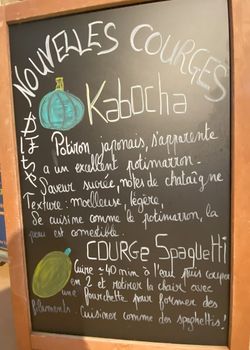 NOUVELLES COURGES
Kabocha
Potiron japonais, s'apparente
à un excellent potimarron.
Saveur sucrée, notes de chataîgne
Texture: moelleuse, légère,
Se cuisine comme le potimarron, la
peau est comestible.
COURGE Spaguetti
Cuire ~ 40 min à l'eau puis couper
en 2 et retirer la chair avec
une fourchette pour former des
filaments. Cuisiner comme des spaghettis!